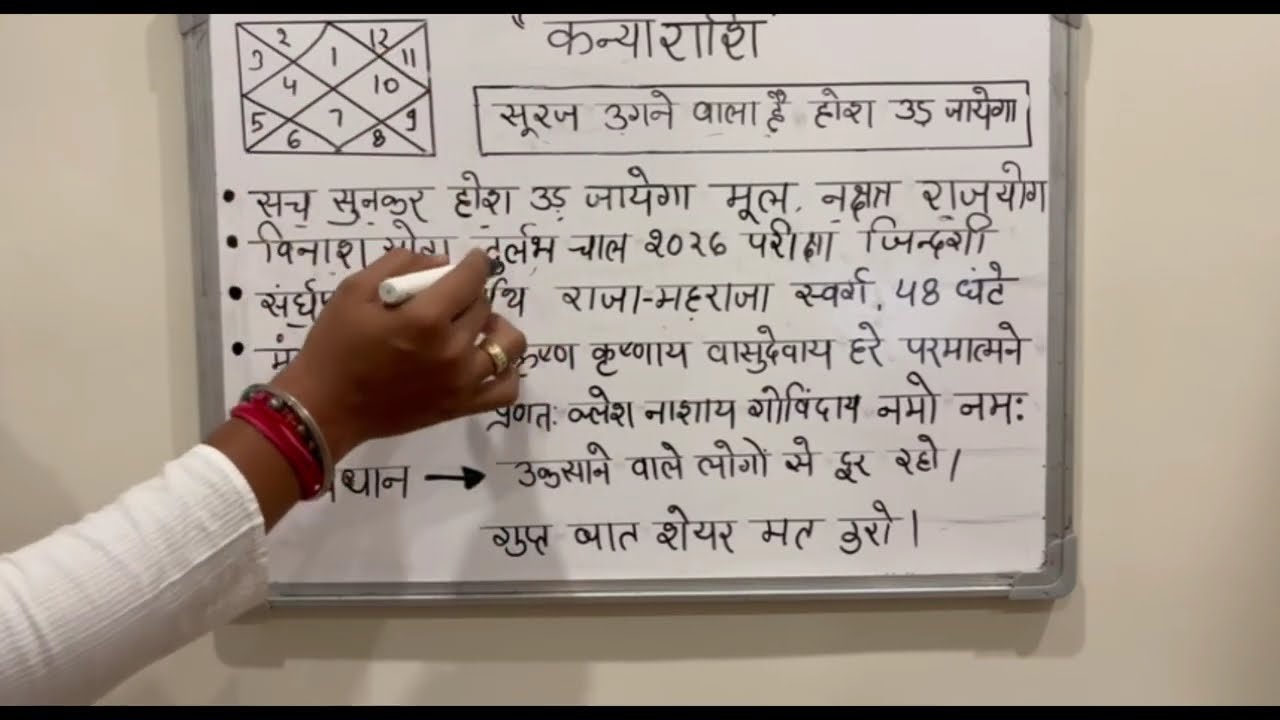 2 12
3 1 11
4 10
5 7 9
6 8
"कन्याराशि"
सूरज उगने वाला है होश उड़ जायेगा
• सच सुनकर होश उड़ जायेगा मूल. नक्षत्र राजयोग
• विनाश योग दुर्लभ चाल २०२६ परीक्षा जिन्दगी
• राजा-महराजा स्वर्ग. 48 घंटे
• कृष्ण कृष्णाय वासुदेवाय हरे परमात्मने
प्रणतः क्लेश नाशाय गोविंदाय नमो नमः
→ उकसाने वाले लोगों से दूर रहो।
गुप्त बात शेयर मत करो।